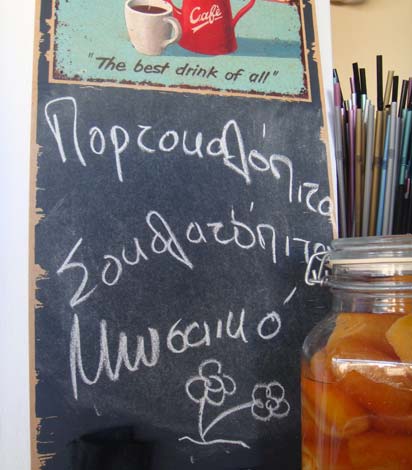 Café
"The best drink of all"
Πορτοκαλόπιτα
Σοκολατόπιτα
Μωσαικό